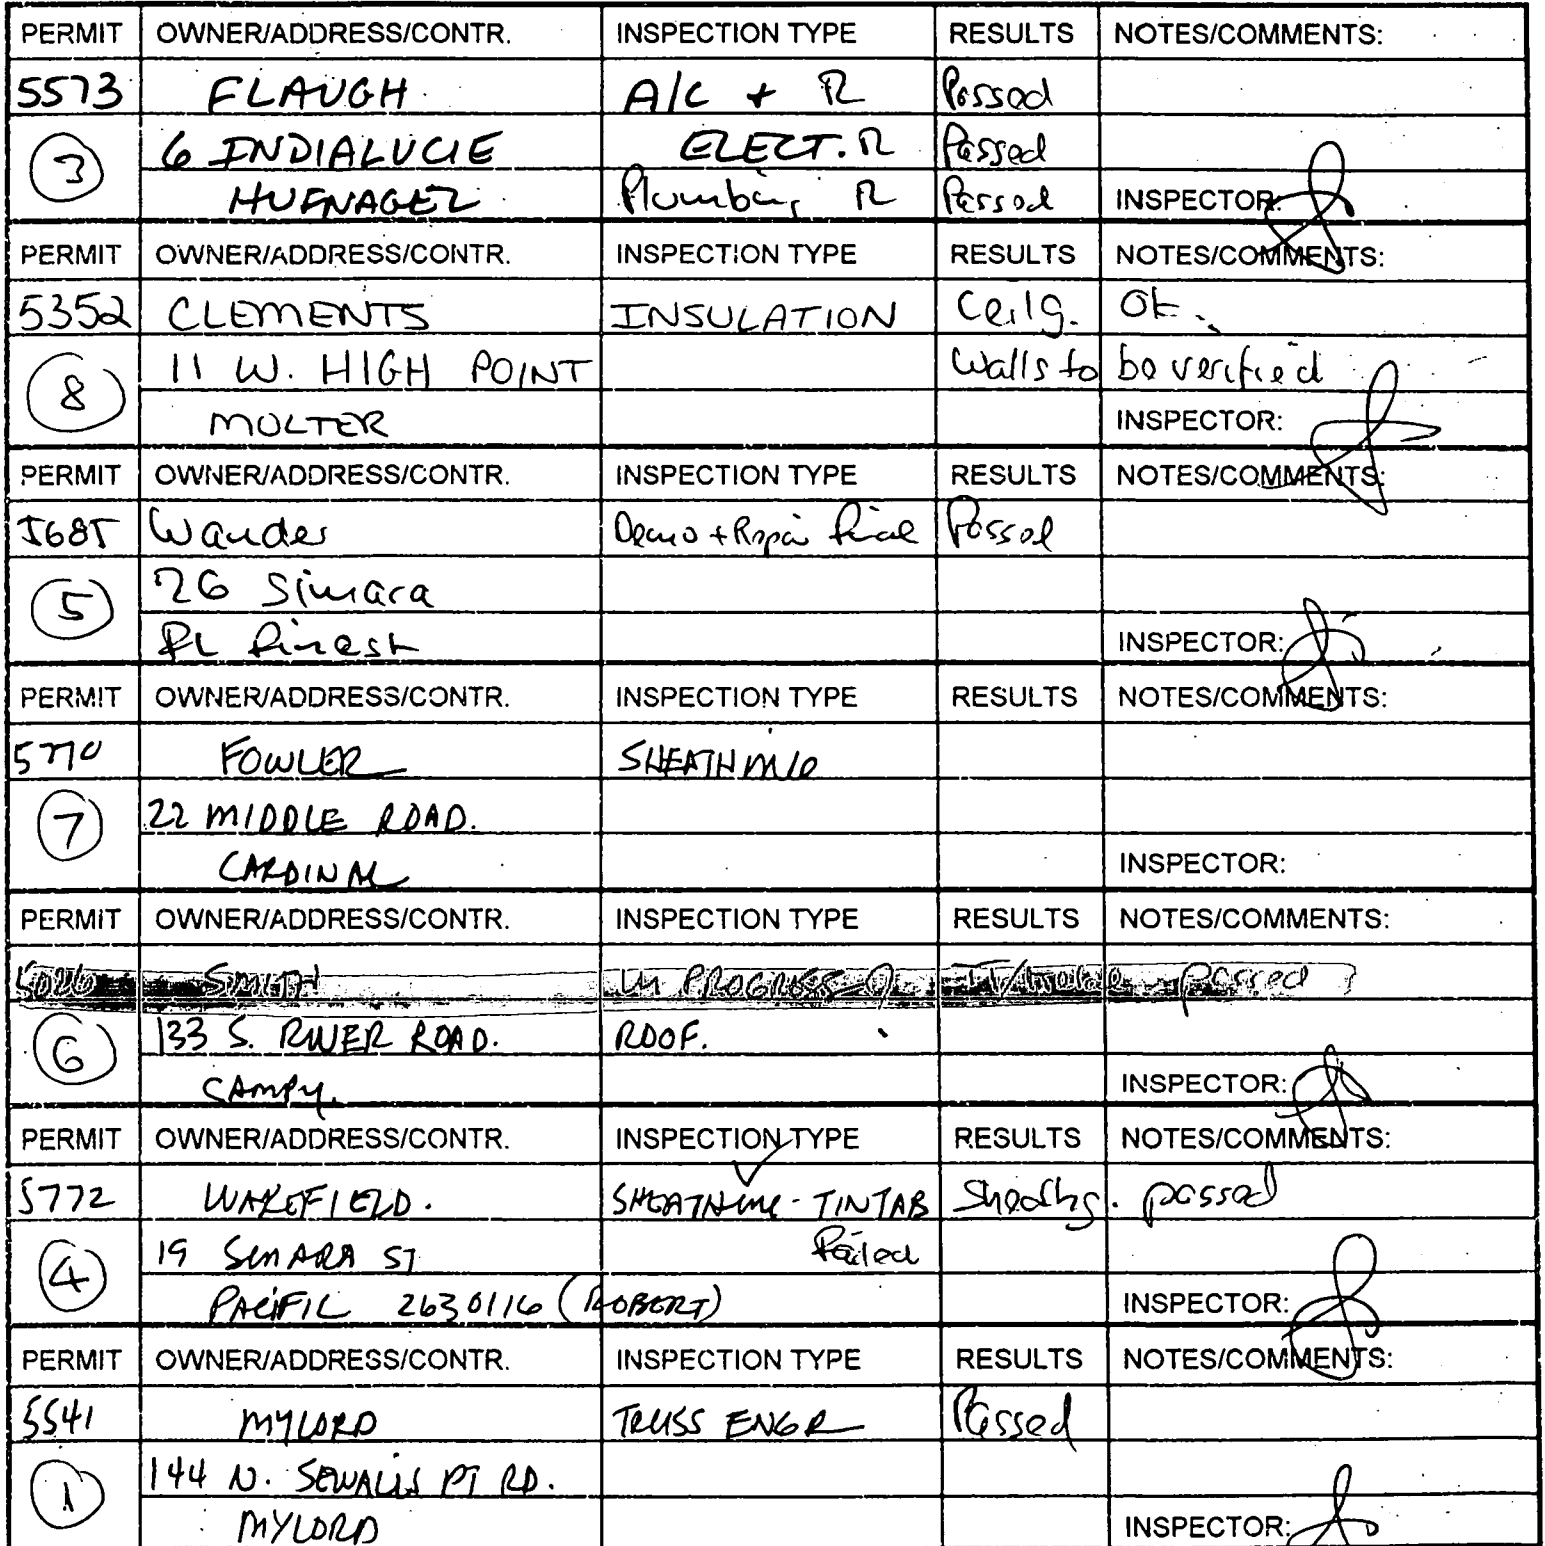 PERMIT OWNER/ADDRESS/CONTR. INSPECTION TYPE RESULTS NOTES/COMMENTS:
5573 FLAUGH A/C + R Passed
3 6 INDIALUCIE ELECT. R Passed
HUFNAGEL Plumbing R Passed INSPECTOR:
PERMIT OWNER/ADDRESS/CONTR. INSPECTION TYPE RESULTS NOTES/COMMENTS:
5352 CLEMENTS INSULATION Ceilg. OK.
8 11 W. HIGH POINT Walls to be verified
MOLTER INSPECTOR:
PERMIT OWNER/ADDRESS/CONTR. INSPECTION TYPE RESULTS NOTES/COMMENTS:
5685 Wander Demo + Repair final Passed
5 26 Simara
FL Finest INSPECTOR:
PERMIT OWNER/ADDRESS/CONTR. INSPECTION TYPE RESULTS NOTES/COMMENTS:
5770 FOWLER SHEATHING
7 22 MIDDLE ROAD.
CARDINAL INSPECTOR:
PERMIT OWNER/ADDRESS/CONTR. INSPECTION TYPE RESULTS NOTES/COMMENTS:
5026 SMITH IN PROGRESS passed
6 133 S. RIVER ROAD. ROOF.
INSPECTOR:
PERMIT OWNER/ADDRESS/CONTR. INSPECTION TYPE RESULTS NOTES/COMMENTS:
5772 WAKEFIELD. SHEATHING - TINTAB Sheathg. passed
4 19 SIMARA ST Failed
PACIFIC 2630116 (ROBERT) INSPECTOR:
PERMIT OWNER/ADDRESS/CONTR. INSPECTION TYPE RESULTS NOTES/COMMENTS:
5541 MYLORD TRUSS ENGR Passed
1 144 N. SEWALLS PT RD.
MYLORD INSPECTOR: